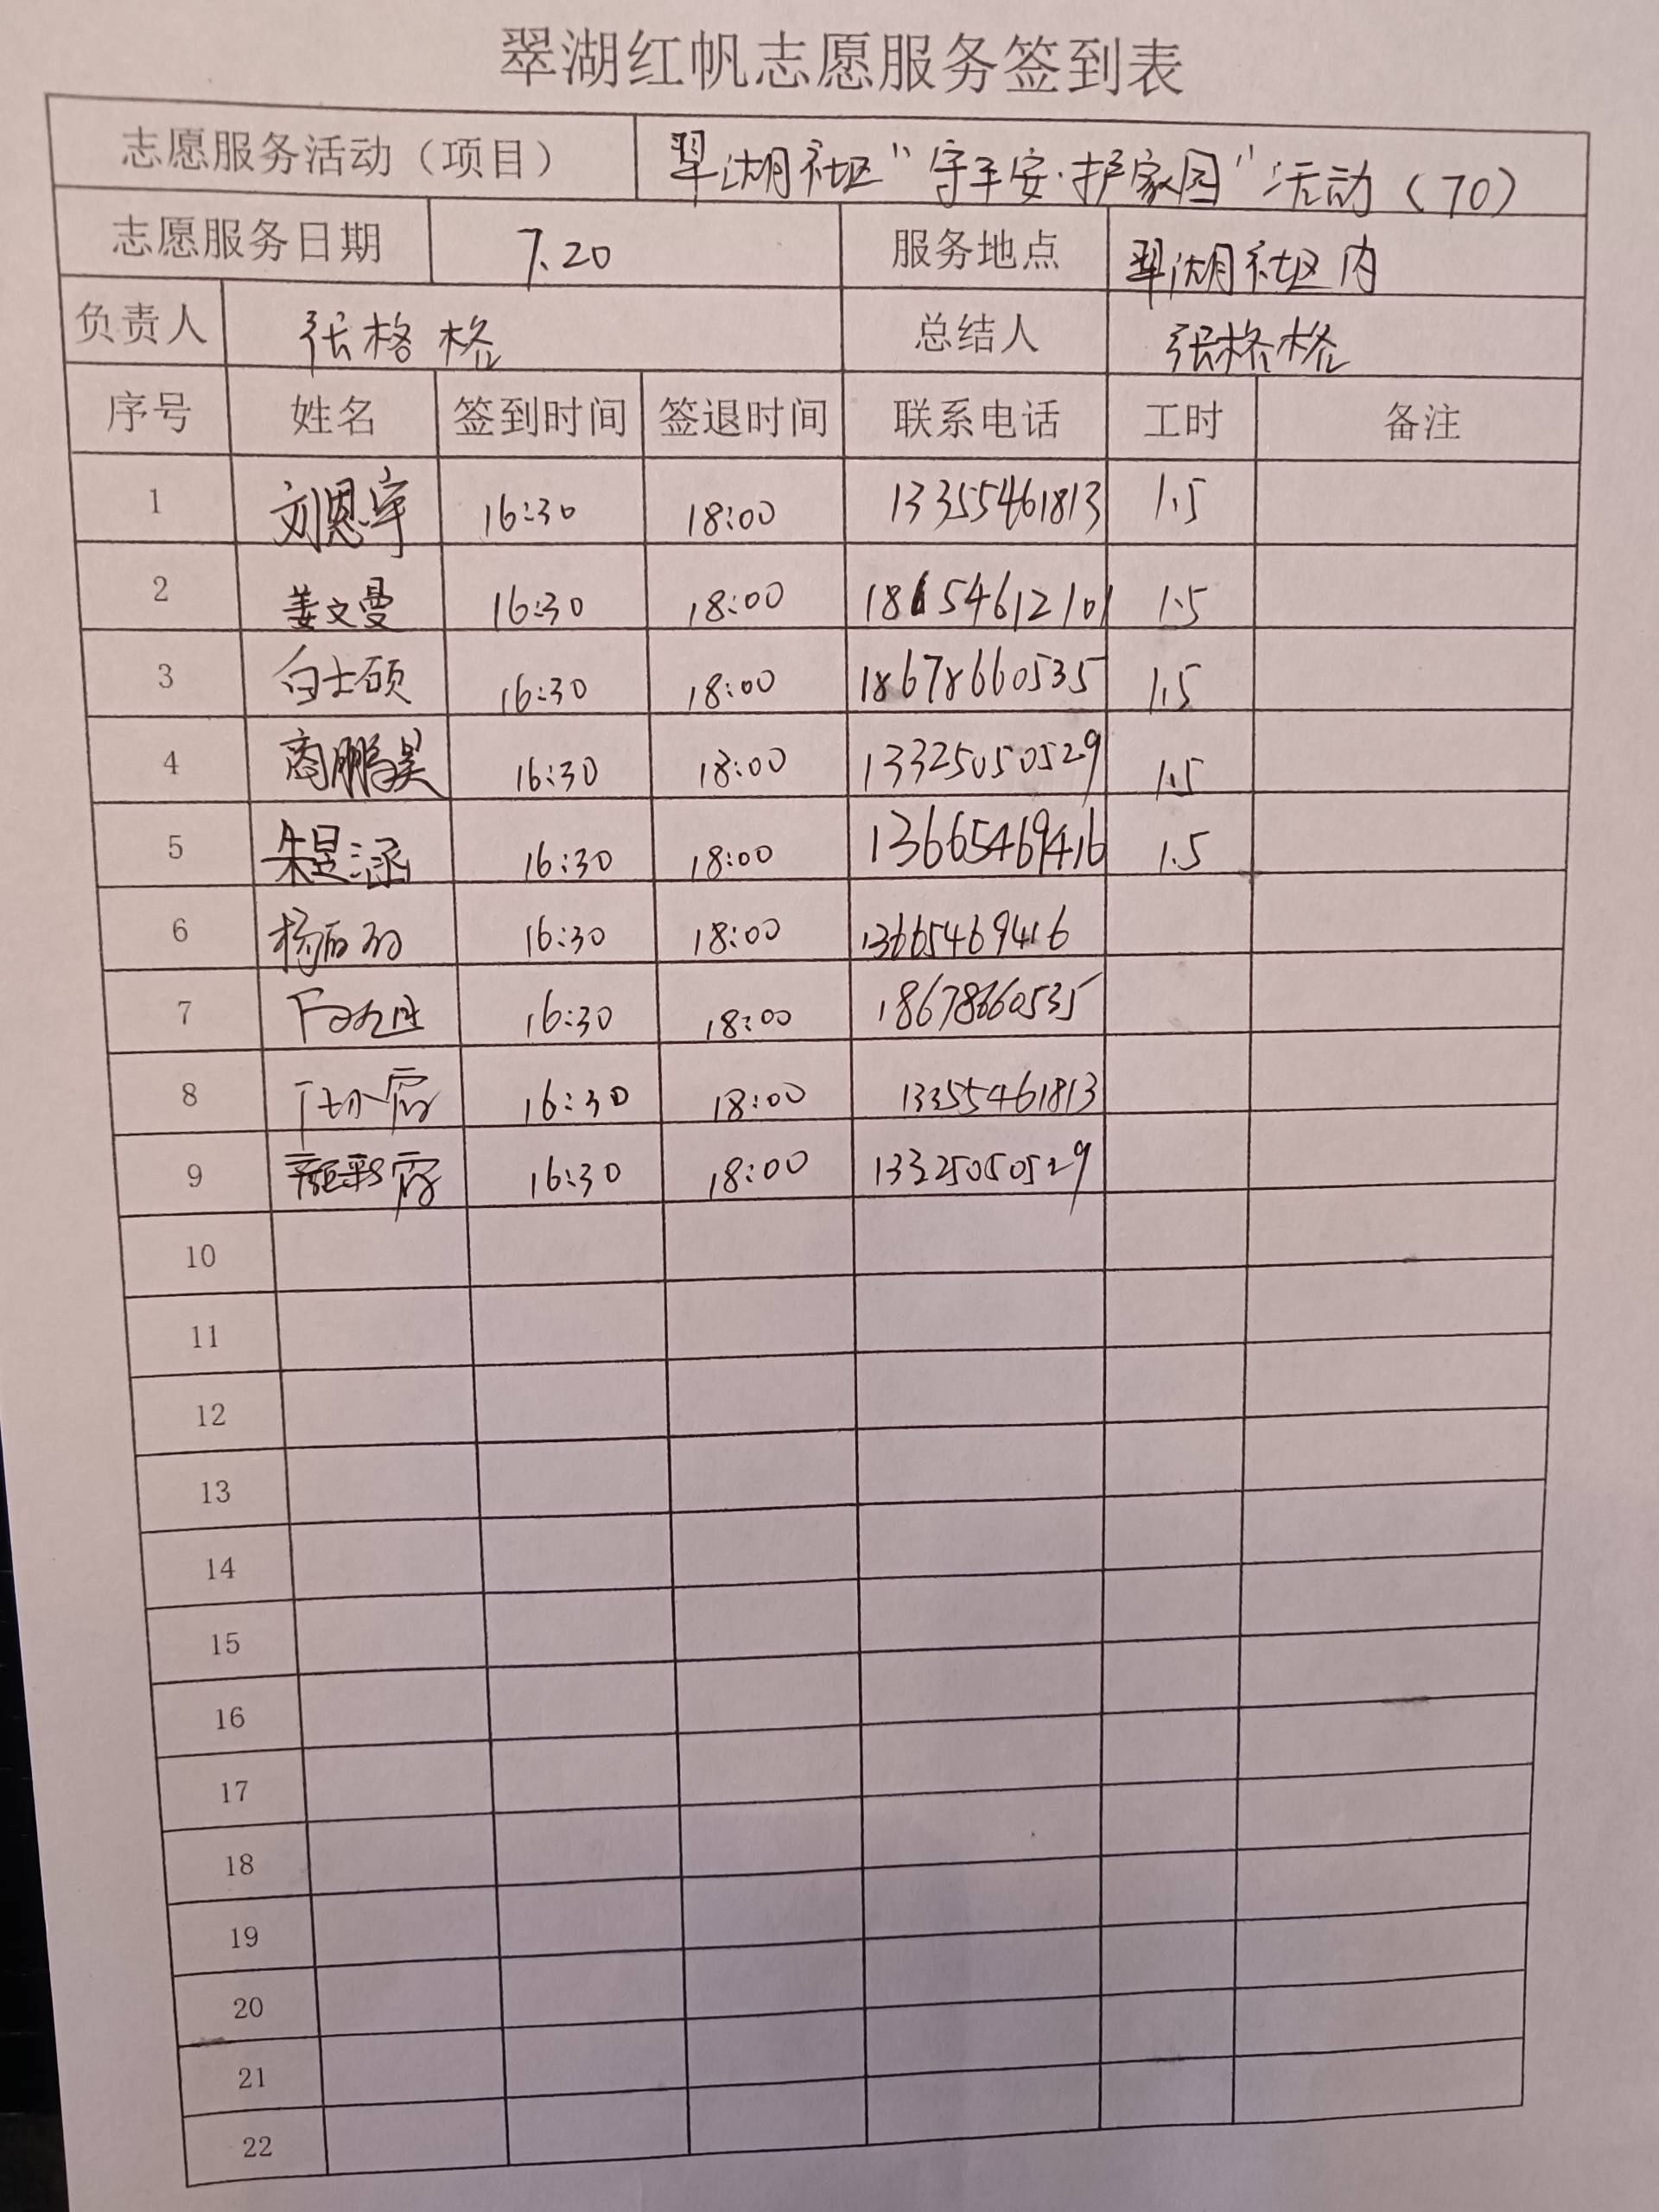 翠湖红帆志愿服务签到表
志愿服务活动（项目） 翠湖社区“守平安·护家园”活动（70）
志愿服务日期 7.20 服务地点 翠湖社区内
负责人 张格格 总结人 张格格
序号 姓名 签到时间 签退时间 联系电话 工时 备注
1 刘恩宇 16:30 18:00 13355461813 1.5
2 姜文曼 16:30 18:00 18654612101 1.5
3 白士硕 16:30 18:00 18678660535 1.5
4 商鹏昊 16:30 18:00 13325050529 1.5
5 朱昱涵 16:30 18:00 13665469416 1.5
6 16:30 18:00 13665469416
7 16:30 18:00 18678660535
8 16:30 18:00 13355461813
9 16:30 18:00 13325050529
10
11
12
13
14
15
16
17
18
19
20
21
22